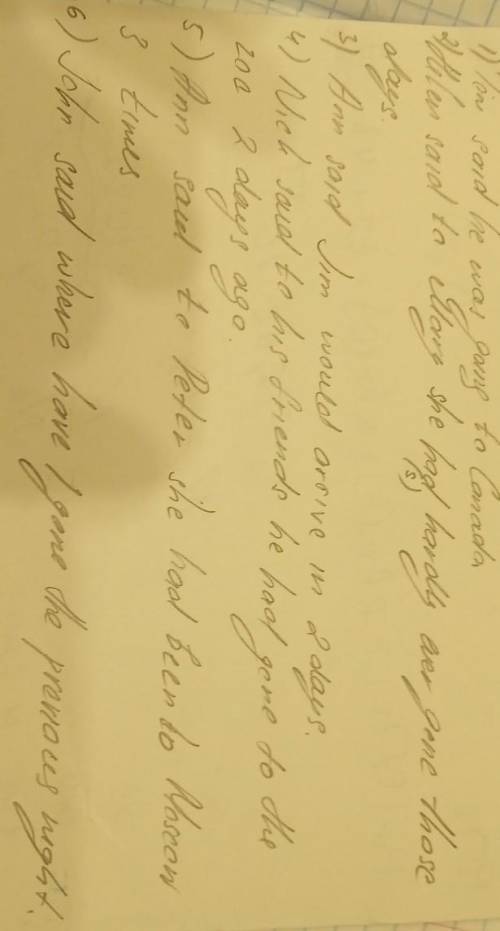 1) Tom said he was going to Canada
2) Helen said to Mary she had (s) hardly ever gone those
days.
3) Ann said Jim would arsive in 2 days.
4) Nick said to his friends he had gone to the
zoo 2 days ago.
5) Ann said to Peter she had been to Moscow
3 times
6) John said where have I gone the previous night.